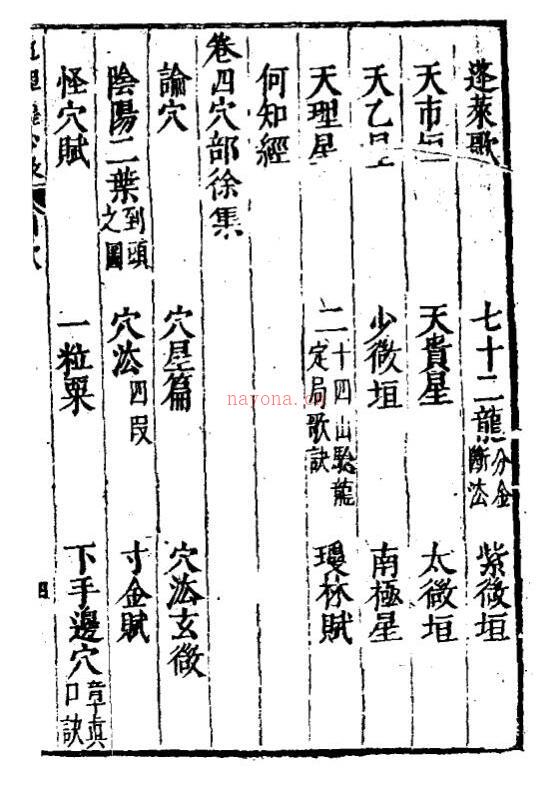 蓬萊歌 七十二龍分金斷法 紫微垣
天市垣 天貴星 太微垣
天乙星 少微垣 南極星
天理星 二十四山駘龍定局歌訣 瓊林賦
何知經
卷四穴部徐集
論穴 穴星篇 穴法玄微
陰陽二葉到頭之圖 穴法四叚 寸金賦
怪穴賦 一粒粟 下手邊穴章真口訣
四
nayona.cn